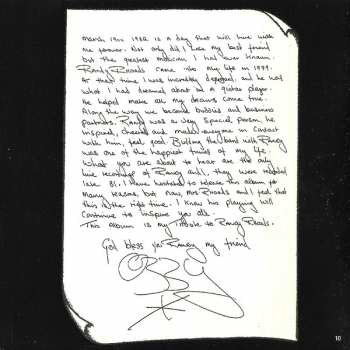 March 19th 1982 is a day that will live with
me forever. Not only did I lose my best friend
but the greatest musician I had ever known.
Randy Rhoads came into my life in 1979.
At that time I was incredibly depressed, and he was
what I had dreamed about in a guitar player.
He helped make all my dreams come true.
Along the way we became buddies and business
partners. Randy was a very special person, he
inspired, cheered and made everyone in contact
with him, feel good. Building the band with Randy
was one of the happiest times of my life.
What you are about to hear are the only
live recordings of Randy and I, they were recorded
late 81. I have wanted to release this album for
many reasons, but now, Mrs Rhoads and I feel that
this is the right time. I know his playing will
continue to inspire you all.
This album is my tribute to Randy Rhoads.
God bless you Randy my friend
Ozzy
10